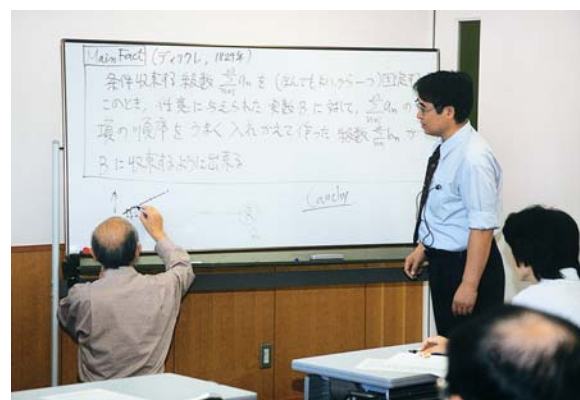 Main Fact (ディリクレ, 1829年)
条件収束する級数 ∑ an を (なんでもよいから一つ) 固定する
このとき、任意に与えられた実数 B に対して, ∑ an の
項の順序をうまく入れかえて作った級数 ∑ bn が
B に収束するように出来る
Cauchy